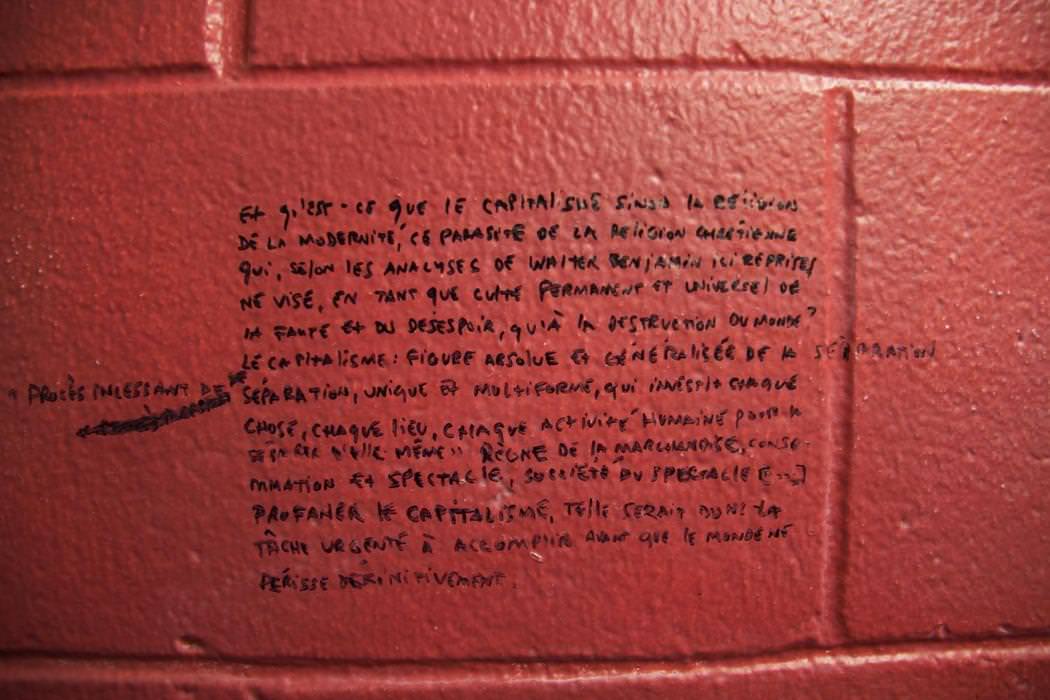 ET QU'EST-CE QUE LE CAPITALISME SINON LA RELIGION
DE LA MODERNITÉ, CE PARASITE DE LA RELIGION CHRÉTIENNE
QUI, SELON LES ANALYSES DE WALTER BENJAMIN ICI REPRISES
NE VISE, EN TANT QUE CULTE PERMANENT ET UNIVERSEL DE
LA FAUTE ET DU DÉSESPOIR, QU'À LA DESTRUCTION DU MONDE?
LE CAPITALISME: FIGURE ABSOLUE ET GÉNÉRALISÉE DE LA SÉPARATION
"PROCÈS INCESSANT DE
SÉPARATION, UNIQUE ET MULTIFORME, QUI INVESTIT CHAQUE
CHOSE, CHAQUE LIEU, CHAQUE ACTIVITÉ HUMAINE POUR LA
SÉPARER D'ELLE MÊME" RÈGNE DE LA MARCHANDISE, CONSO-
MMATION ET SPECTACLE, SOCIÉTÉ DU SPECTACLE [...]
PROFANER LE CAPITALISME, TELLE SERAIT DONC LA
TÂCHE URGENTE À ACCOMPLIR AVANT QUE LE MONDE NE
PÉRISSE DÉFINITIVEMENT.